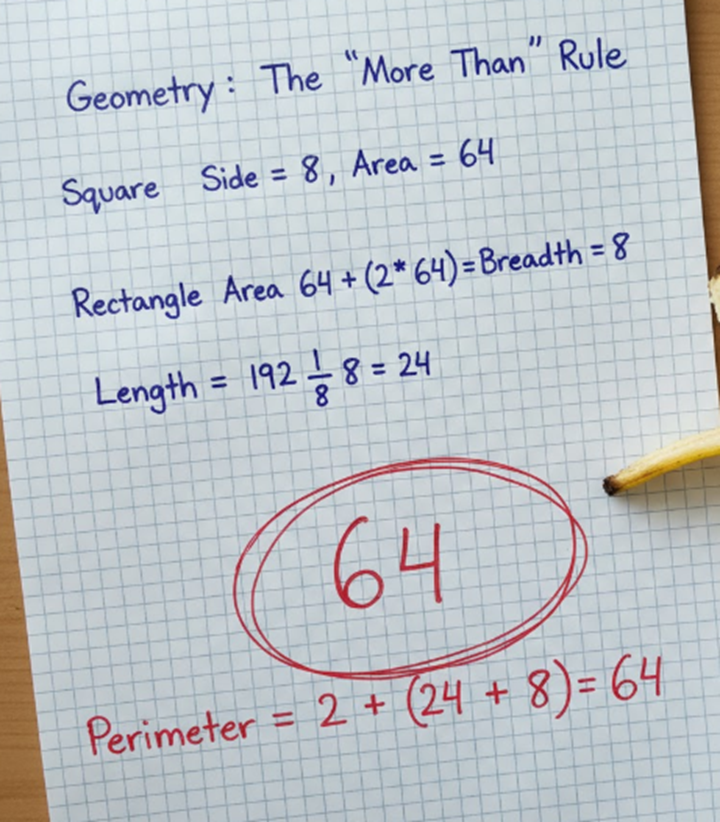 Geometry: The "More Than" Rule
Square Side = 8, Area = 64
Rectangle Area 64 + (2* 64) = Breadth = 8
Length = 192 1/8 8 = 24
64
Perimeter = 2 + (24 + 8) = 64